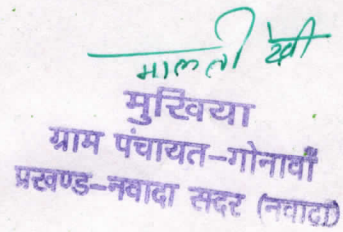 मालती देवी
मुखिया
ग्राम पंचायत-गोनावाँ
प्रखण्ड-नवादा सदर (नवादा)